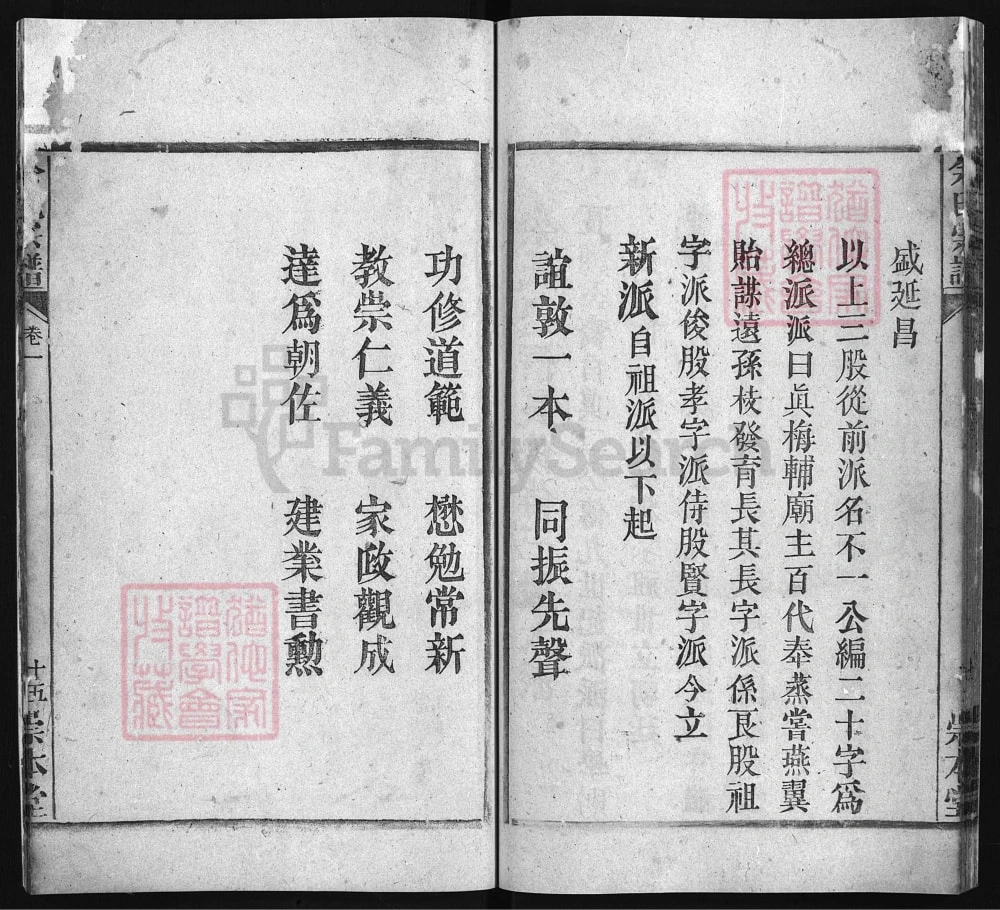 盛延昌
以上三股從前派名不一公編二十字為
總派派曰真梅輔廟主百代奉蒸嘗燕翼
貽謀遠孫枝發育長其長字派係艮股祖
字派俊股孝字派侍股賢字派今立
新派自祖派以下起
誼敦一本 同振先聲
功修道範 懋勉常新
教崇仁義 家政觀成
達爲朝佐 建業書勲
余氏宗譜
崇本堂
卷一
十五
崇本堂
FamilySearch